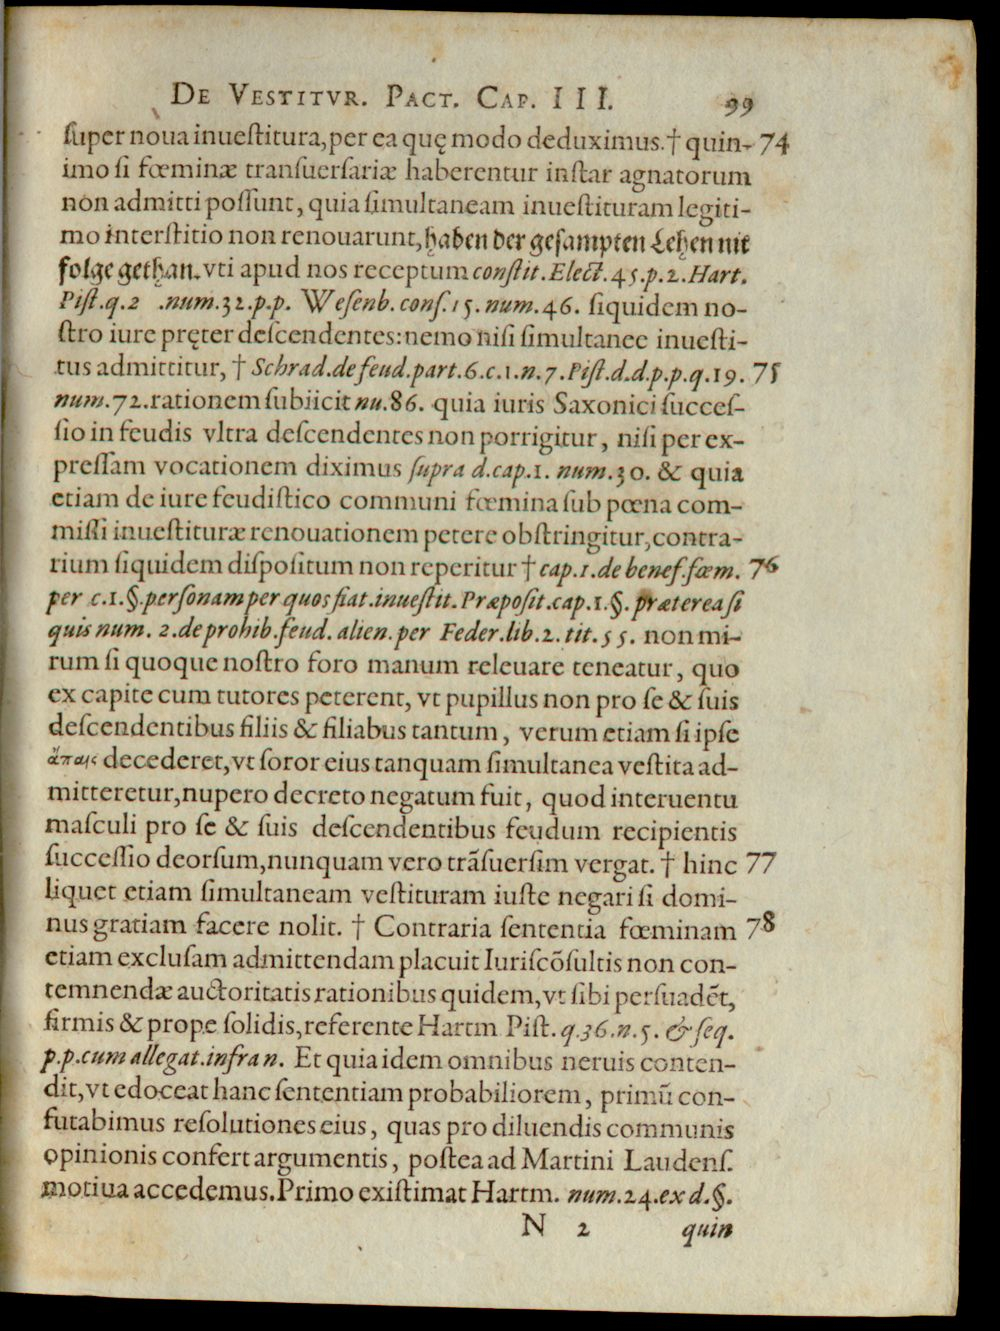 De Vestitvr. Pact. Cap. III. 99
ſuper noua inueſtitura, per ea quę modo deduximus. † quin- 74
imo ſi fœminæ tranſuerſariæ haberentur inſtar agnatorum
non admitti poſſunt, quia ſimultaneam inueſtituram legiti-
mo interſtitio non renouarunt, haben der geſampten Lehen nit
folge gethan. vti apud nos receptum conſtit. Elect. 45. p. 2. Hart.
Piſt. q. 2 . num. 32. p. p. Weſenb. conſ. 15. num. 46. ſiquidem no-
ſtro iure pręter deſcendentes: nemo niſi ſimultanee inueſti-
tus admittitur, † Schrad. de feud. part. 6. c. 1. n. 7. Piſt. d. d. p. p. q. 19. 75
num. 72. rationem ſubiicit nu. 86. quia iuris Saxonici ſucceſ-
ſio in feudis vltra deſcendentes non porrigitur, niſi per ex-
preſſam vocationem diximus ſupra d. cap. 1. num. 30. & quia
etiam de iure feudiſtico communi fœmina ſub pœna com-
miſſi inueſtituræ renouationem petere obſtringitur, contra-
rium ſiquidem diſpoſitum non reperitur † cap. 1. de benef. fœm. 76
per c. 1. §. perſonam per quos fiat. inueſtit. Præpoſit. cap. 1. §. præterea ſi
quis num. 2. de prohib. feud. alien. per Feder. lib. 2. tit. 55. non mi-
rum ſi quoque noſtro foro manum releuare teneatur, quo
ex capite cum tutores peterent, vt pupillus non pro ſe & ſuis
deſcendentibus filiis & filiabus tantum, verum etiam ſi ipſe
ἄπαις decederet, vt ſoror eius tanquam ſimultanea veſtita ad-
mitteretur, nupero decreto negatum fuit, quod interuentu
maſculi pro ſe & ſuis deſcendentibus feudum recipientis
ſucceſſio deorſum, nunquam vero trãſuerſim vergat. † hinc 77
liquet etiam ſimultaneam veſtituram iuſte negari ſi domi-
nus gratiam facere nolit. † Contraria ſententia fœminam 78
etiam excluſam admittendam placuit Iuriſcõſultis non con-
temnendæ auctoritatis rationibus quidem, vt ſibi perſuadẽt,
firmis & prope ſolidis, referente Hartm Piſt. q. 36. n. 5. & ſeq.
p. p. cum allegat. infra n. Et quia idem omnibus neruis conten-
dit, vt edoceat hanc ſententiam probabiliorem, primũ con-
futabimus reſolutiones eius, quas pro diluendis communis
opinionis confert argumentis, poſtea ad Martini Laudenſ.
motiua accedemus. Primo exiſtimat Hartm. num. 24. ex d. §.
N 2 quin